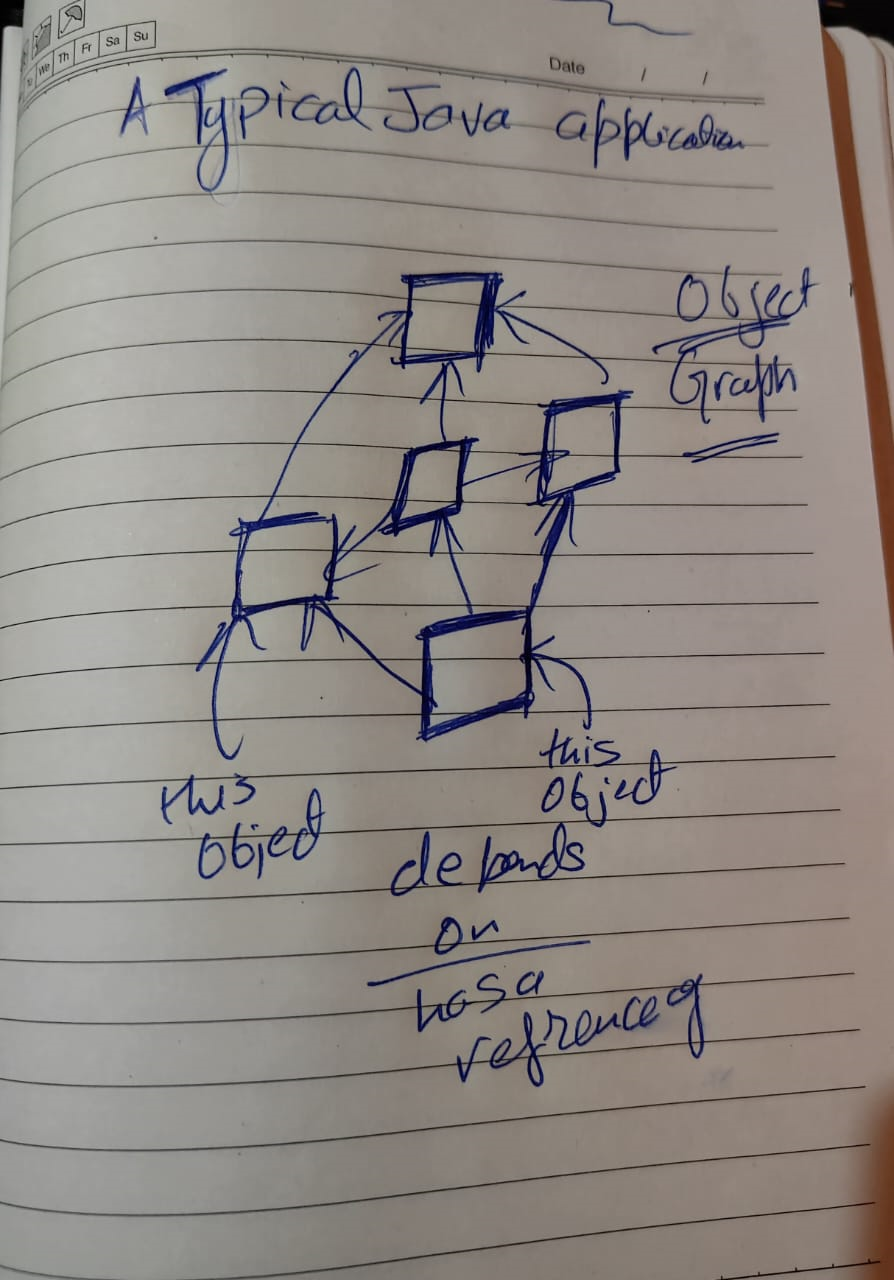 Tu We Th Fr Sa Su
Date / /
A Typical Java application
Object
Graph
this
object
this
object
depends
on
has a
refrence of